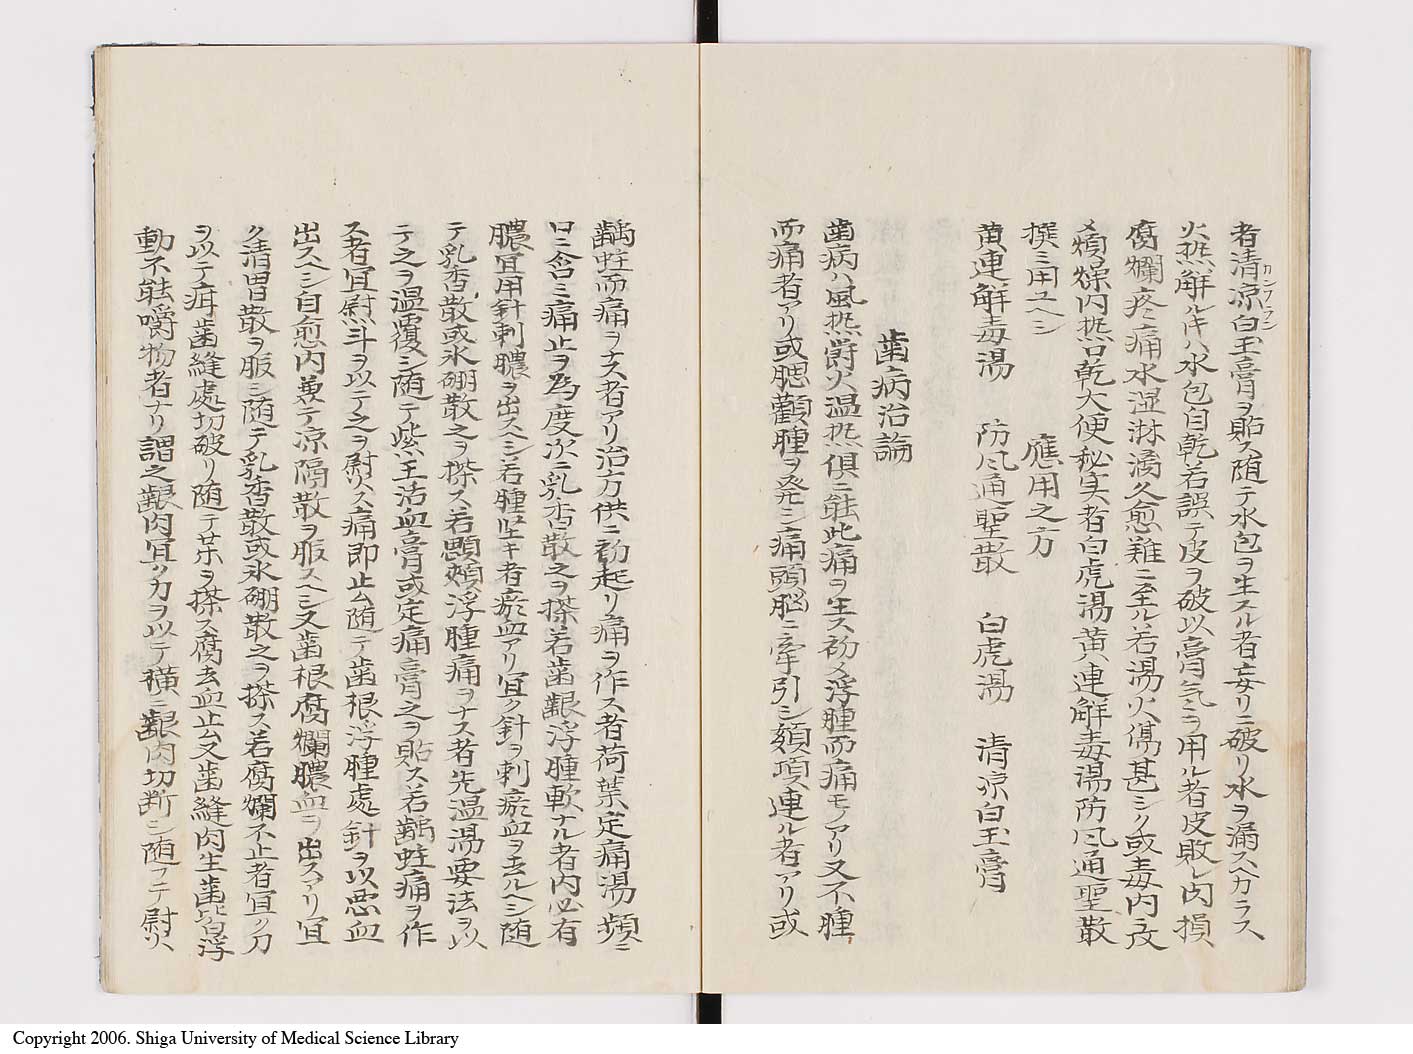 者清凉白玉膏ヲ貼ス随テ水包ヲ生スル者妄リニ破リ水ヲ漏スヘカラス
火热解ルトキハ水包自乾若誤テ皮ヲ破以膏気ヲ用ル者皮敗レ肉損
腐爛疼痛水湿淋滴久愈難ニ至ル若湯火傷甚シク或毒内攻
煩燥内热口乾大便秘実者白虎湯黄連解毒湯防风通聖散
撰ミ用ユヘシ 應用之方
黄連解毒湯 防风通聖散 白虎湯 清凉白玉膏
歯病治論
歯病ハ風热欝火温热俱ニ能此痛ヲ生ス初メ浮腫而痛モノアリ又不腫
而痛者アリ或腮顴腫ヲ発シ痛頭脳ニ牽引シ頬項連ル者アリ或
齲蛀而痛ヲナス者アリ治方供ニ初起リ痛ヲ作ス者荷葉定痛湯頻ニ
口ニ含ミ痛止ヲ為度次ニ乳香散之ヲ搽若歯齦浮腫軟ナル者内必有
膿冝用針刺膿ヲ出スヘシ若腫坚キ者瘀血アリ冝ク針ヲ刺瘀血ヲ去ルヘシ随
テ乳香散或氷硼散之ヲ搽ス若顋頰浮腫痛ヲナス者先温湯要法ヲ以
テ之ヲ温覆シ随テ紫玉活血膏或定痛膏之ヲ貼ス若齲蛀痛ヲ作
ス者冝尉斗ヲ以テ之ヲ尉ス痛即止ム随テ歯根浮腫處針ヲ以悪血
出スヘシ自愈内兼テ凉隔散ヲ服スヘシ又歯根腐爛膿血ヲ出スアリ冝
ク清胃散ヲ服シ随テ乳香散或氷硼散之ヲ搽ス若腐爛不止者冝ク刀
ヲ以テ歯縫處切破リ随テ搽ス腐去血止ム又歯縫肉生歯皆浮
動不能嚼物者ナリ謂之齦肉冝ク力ヲ以テ横ニ齦肉切断シ随テ尉火
Copyright 2006. Shiga University of Medical Science Library